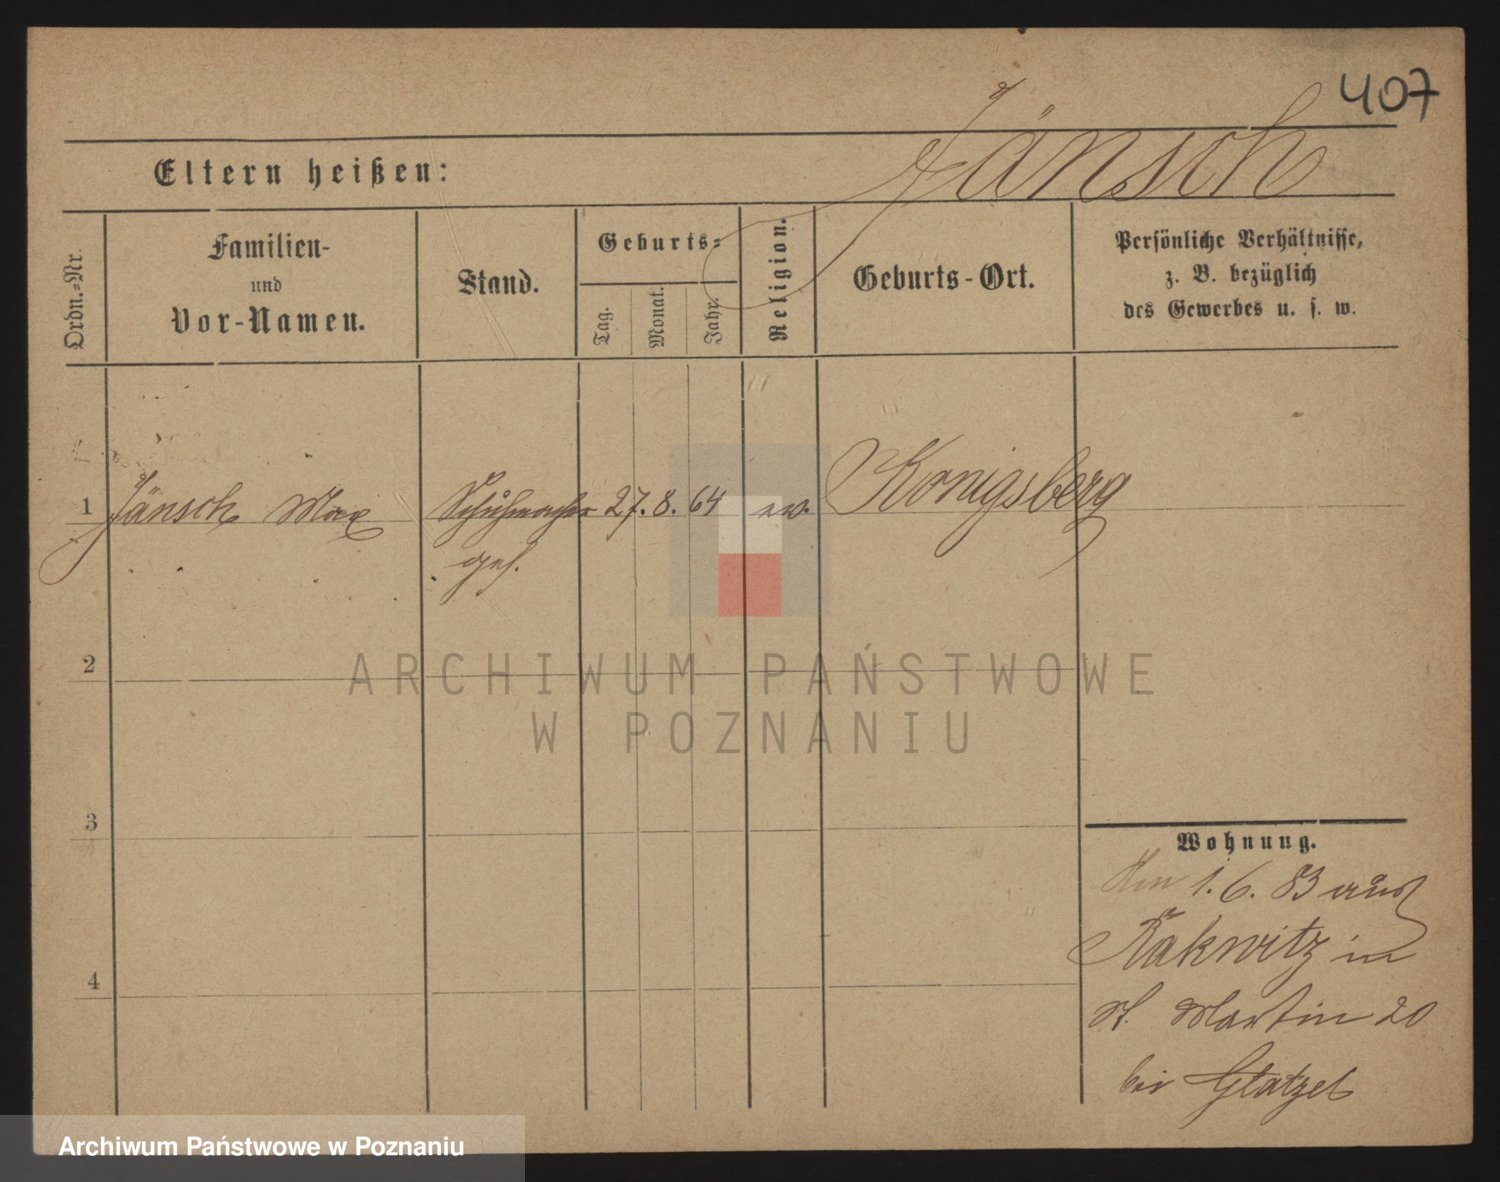 407
Jänsch
Eltern heißen:
Ordn.-Nr.
Familien-
und
Vor-Namen.
Stand.
Geburts-
Tag.
Monat.
Jahr.
Religion.
Geburts-Ort.
Persönliche Verhältnisse,
z. B. bezüglich
des Gewerbes u. s. w.
1 Jänsch Max Schuhmacher 27. 8. 64 ev. Königsberg
ges.
2
3
4
Wohnung.
Am 1. 6. 83 aus
Rakwitz in
St. Martin 20
bei Glatzel
ARCHIWUM PAŃSTWOWE
W POZNANIU
Archiwum Państwowe w Poznaniu